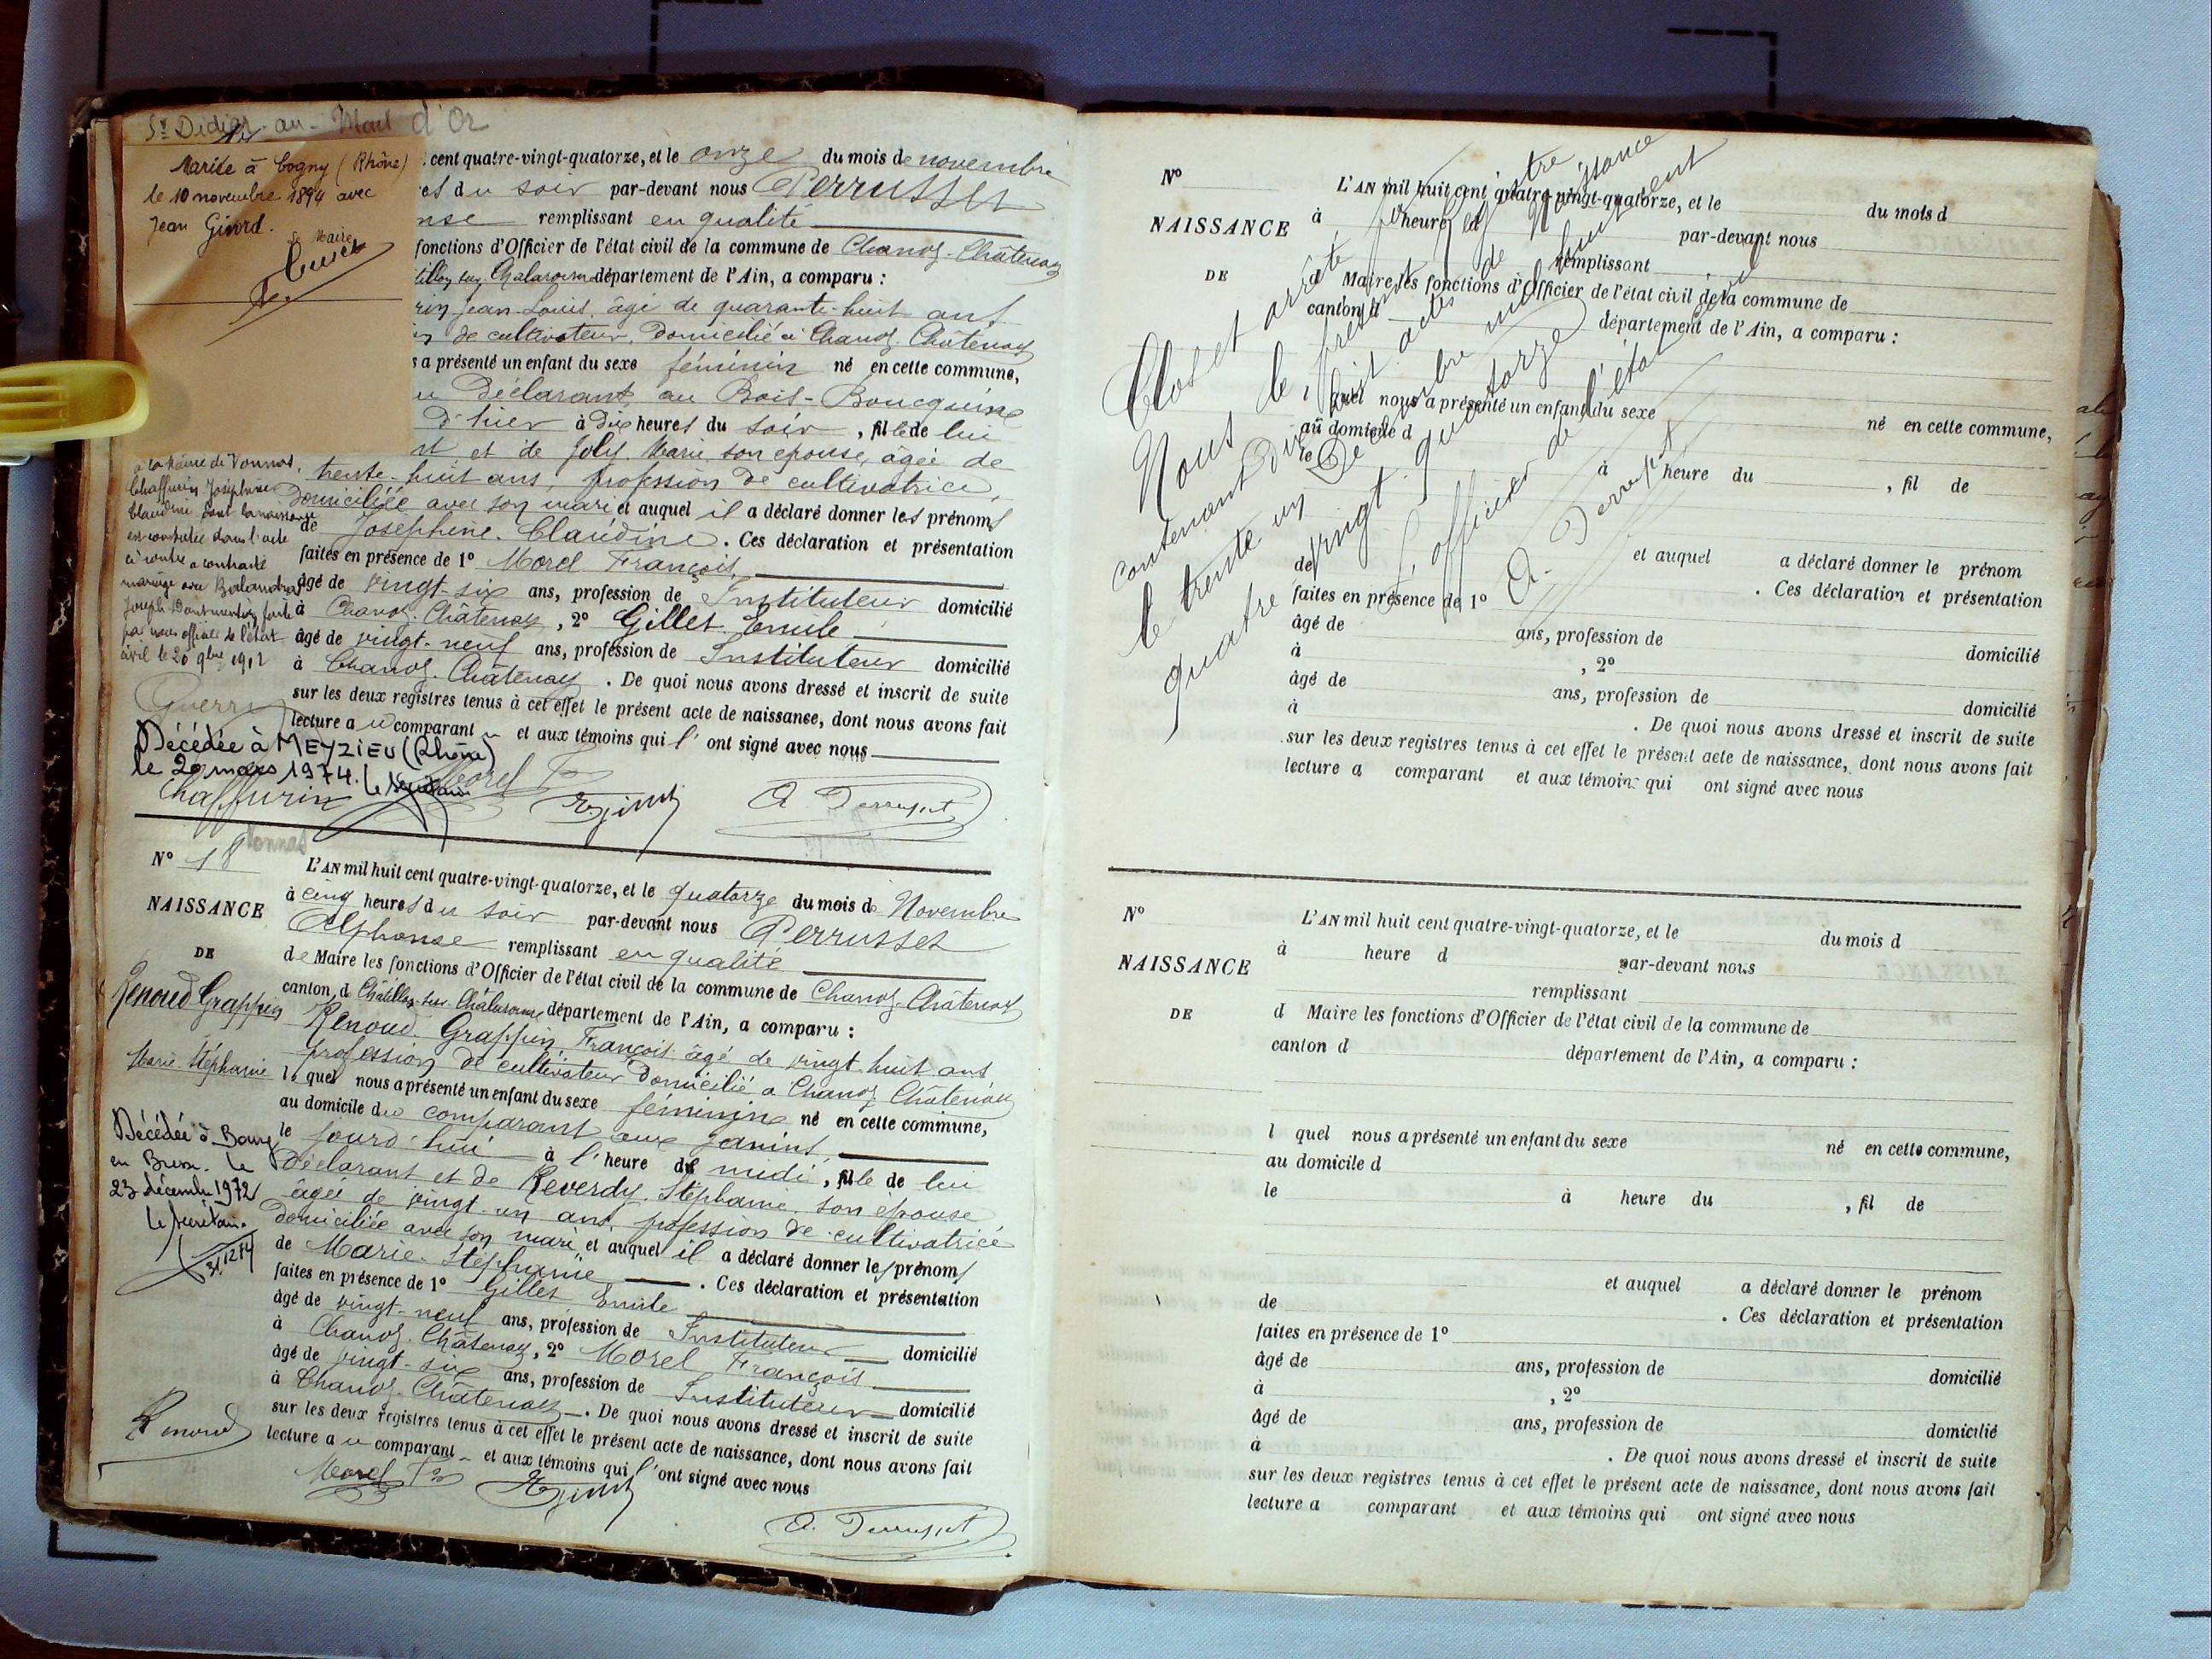 St Didier-au-Mont d'Or
Mariée à Cogny (Rhône)
le 10 novembre 1894 avec
Jean Girord.
Le Maire
cent quatre-vingt-quatorze, et le onze du mois de novembre
es du soir par-devant nous Perrusset
nse remplissant en qualité
fonctions d'Officier de l'état civil de la commune de Chanoz-Châtenay
tillon sur Chalaronne département de l'Ain, a comparu :
rin Jean-Louis, âgé de quarante-huit ans
de cultivateur, domicilié à Chanoz-Châtenay
s a présenté un enfant du sexe féminin né en cette commune,
u Déclarant, au Bois-Boucquin
d'hier à dix heures du soir, fille de lui
nt et de Joly Marie, son épouse, âgée de
trente-huit ans, profession de cultivatrice,
domiciliée avec son mari et auquel il a déclaré donner les prénoms
de Joséphine-Claudine. Ces déclaration et présentation
faites en présence de 1° Morel François,
âgé de vingt-six ans, profession de Instituteur domicilié
à Chanoz-Châtenay, 2° Gillet Emile
âgé de vingt-neuf ans, profession de Instituteur domicilié
à Chanoz-Châtenay. De quoi nous avons dressé et inscrit de suite
sur les deux registres tenus à cet effet le présent acte de naissance, dont nous avons fait
lecture au comparant et aux témoins qui l'ont signé avec nous
à la Mairie de Vonnas,
Chaffurin Joséphine
Claudine dont la naissance
est constatée dans l'acte
ci-contre a contracté
mariage avec
Joseph
par nous officier de l'état
civil le 20 9bre 1912
Décédée à MEYZIEU (Rhône)
le 20 mars 1974. Le Secrétaire
Chaffurin Morel F E. Gillet A Perrusset
Vonnas
N° 18
NAISSANCE
DE
Renoud Grappin
Marie Stéphanie
Décédée à Bourg
en Bresse. le
23 décembre 1972
Le Secrétaire
L'AN mil huit cent quatre-vingt-quatorze, et le quatorze du mois de Novembre
à cinq heures du soir par-devant nous Perrusset
Alphonse remplissant en qualité
de Maire les fonctions d'Officier de l'état civil de la commune de Chanoz-Châtenay
canton de Châtillon-sur-Chalaronne département de l'Ain, a comparu :
Renoud Grappin, François âgé de vingt huit ans
profession de cultivateur domicilié à Chanoz Châtenay
lequel nous a présenté un enfant du sexe féminin né en cette commune,
au domicile du comparant aux Janins,
le jourd'hui à l'heure de midi, fille de lui
Déclarant et de Reverdy Stéphanie, son épouse
âgée de vingt-un ans, profession de cultivatrice
domiciliée avec son mari, et auquel il a déclaré donner les prénoms
de Marie-Stéphanie. Ces déclaration et présentation
faites en présence de 1° Gillet Emile
âgé de vingt-neuf ans, profession de Instituteur domicilié
à Chanoz-Châtenay, 2° Morel François
âgé de vingt-six ans, profession de Instituteur domicilié
à Chanoz-Châtenay. De quoi nous avons dressé et inscrit de suite
sur les deux registres tenus à cet effet le présent acte de naissance, dont nous avons fait
lecture au comparant et aux témoins qui l'ont signé avec nous
Renoud
Morel F E. Gillet
A. Perrusset
N°
NAISSANCE
DE
L'AN mil huit cent quatre-vingt-quatorze, et le du mois d
à heure d par-devant nous
remplissant
d Maire les fonctions d'Officier de l'état civil de la commune de
canton d département de l'Ain, a comparu :
l quel nous a présenté un enfant du sexe né en cette commune,
au domicile d
le à heure du , fil de
et auquel a déclaré donner le prénom
de . Ces déclaration et présentation
faites en présence de 1°
âgé de ans, profession de domicilié
à , 2°
âgé de ans, profession de domicilié
à . De quoi nous avons dressé et inscrit de suite
sur les deux registres tenus à cet effet le présent acte de naissance, dont nous avons fait
lecture a comparant et aux témoins qui ont signé avec nous
Clos et arrêté par
Nous le présent registre
contenant dix huit actes de Naissance
le trente un Décembre mil huit cent
quatre vingt quatorze
L'officier de l'état civil
A. Perrusset
N°
NAISSANCE
DE
L'AN mil huit cent quatre-vingt-quatorze, et le du mois d
à heure d par-devant nous
remplissant
d Maire les fonctions d'Officier de l'état civil de la commune de
canton d département de l'Ain, a comparu :
l quel nous a présenté un enfant du sexe né en cette commune,
au domicile d
le à heure du , fil de
et auquel a déclaré donner le prénom
de . Ces déclaration et présentation
faites en présence de 1°
âgé de ans, profession de domicilié
à , 2°
âgé de ans, profession de domicilié
à . De quoi nous avons dressé et inscrit de suite
sur les deux registres tenus à cet effet le présent acte de naissance, dont nous avons fait
lecture a comparant et aux témoins qui ont signé avec nous